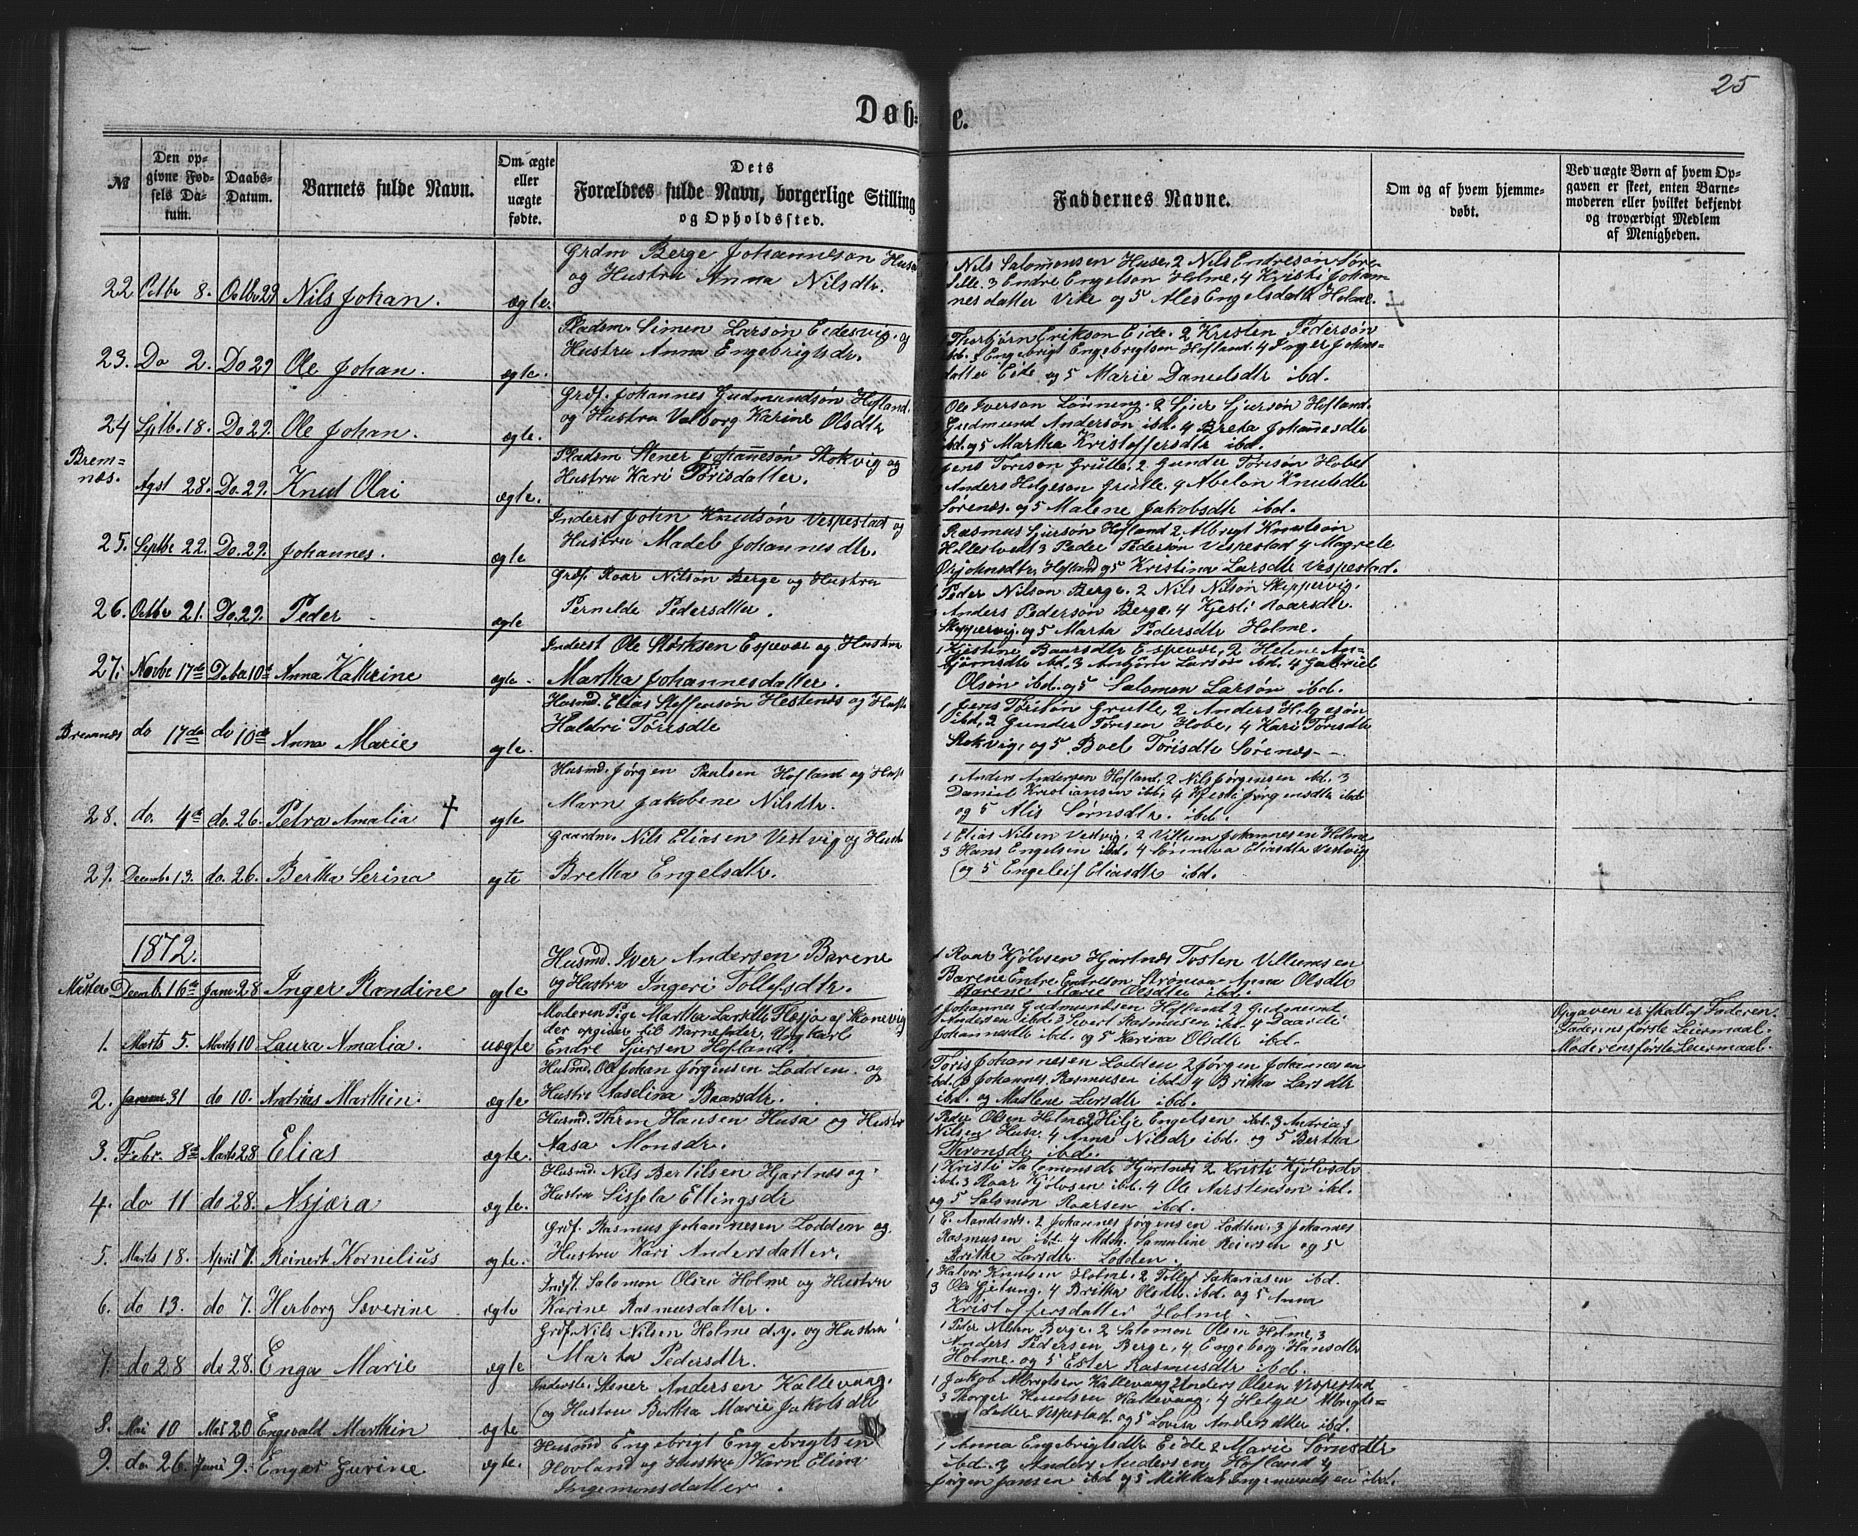 25
Døb-
te.
№
Den op-
givne Fød-
sels Da-
tum.
Daabs-
Datum.
Barnets fulde Navn.
Om ægte
eller
uægte
fødte.
Dets
Forældres fulde Navn, borgerlige Stilling
og Opholdssted.
Faddernes Navne.
Om og af hvem hjemme-
døbt.
Ved uægte Børn af hvem Op-
gaven er skeet, enten Barne-
moderen eller hvilket bekjendt
og troværdigt Medlem
af Menigheden.
22 Octbr 8. Octbr 29 Nils Johan. ægte.
Grdm Berge Johanneson Husa
og Hustru Anna Nilsdtr.
1 Nils Salomonsen Huse, 2 Nils Endreson
3 Endre Engelson Holme, 4 Kristi Johan-
nesdatter Vike og 5 Ales Engelsdatr Holme.
23. Do 2. Do 29 Ole Johan. ægte.
Pladsm. Simen Larson Eidesvig, og
Hustru Anna Engebrigtsdr.
Thorbjørn Erikson Eide. 2 Kristen Pedersøn
ibd. Engebrigt Engebrigtsen Hofland. 4 Inger Johns-
datter Eide, og 5 Marie Danielsdtr ibd.
24 Sptb. 18. Do 29. Ole Johan. ægte.
Grdf. Johannes Gudmundsøn Hofland.
og Hustru Valborg Karine Olsdtr
Ole Iverson Lønning. 2 Sjur Sjursøn Hofland.
Gudmund Andersøn ibd. 4 Breta Johannesdtr
ibd. og 5 Martha Kristoffersdtr ibd.
Brem=
næs.
Agst 28. Do. 29. Knud Olai ægte.
Pladsm Stener Johanesøn Stokvig og
Hustru Kari Torisdatter.
Jens Torison Grutle. 2 Gunder Torisøn Hobet
Anders Helgeson Grutle. 4 Abelon Knutsdtr
Sørenæs. og 5 Malene Jakobsdtr ibd.
25. Septbr 22. Do. 29. Johannes. ægte
Inderst John Knudsøn Vespestad og
Hustru Madel Johannesdtr.
Rasmus Sjursøn Hofland 2 Albrigt Knutsøn
3 Peder Pedersøn Vespestad 4 Magrele
Hofland og 5 Kristina Larsdtr Vespestad.
26. Octbr 21. Do. 29. Peder ægte
Grdf. Roar Nilsøn Berge og Hustru
Pernelde Pedersdtter.
Peder Nilson Berge. 2 Nils Nilsøn Skeppervig.
Anders Pedersøn Berge, 4 Kjesti Roarsdtr.
Skeppervig. og 5 Marta Pedersdtr Holme.
27. Novbr 17de Debr 10d Anna Kathrine ægte.
Inderst Ole Espevær og Hustru
Martha Johannesdatter.
1 Kjestine Baarsdtr Espevær, 2 Helene
ibd. 3 Anbjørn Larsøn ibd. 4 Gabriel
Olsøn ibd. og 5 Salomon Larsøn ibd.
Bremnæs do 17de do 10de Anna Marie ægte.
Husmd. Elias Steffensøn Hestenæs og Hustr
Haldri Torisdtr
1 Jens Torisøn Grutle, 2 Anders Helgesøn
ibd, 2 Gunder Torisen Hobe, 4 Kari Torisdtr
Stokvig, og 5 Boel Torisdtr Sørenæs
28. do. 4d do. 26. Petra Amalia † ægte
Husmd. Jørgen Paulsen Hofland og Hust
Marn Jakobene Nilsdtr.
1 Anders Andersen Hofland, 2 Nils Jørgensen ibd. 3
Daniel Kristiansen ibd, 4 Kjesti Jørgensdtr ibd
og 5 Alis Sørnsdtr. ibd.
29. Decembr 13. do. 26. Bertha Serina ægte
Gaardm. Nils Eliasen Vestvig og Hustr
Bretha Engelsdtr.
1 Elias Nilsen Vestvig. 2 Villum Johannesen Holme
3 Hans Engelsen ibd. 4 Eliasdtr Vestvig
og 5 Engeleif Eliasdtr ibd.
1872.
Decemb. 16d Janu. 28 Inger Randine ægte
Husmd. Iver Andersen Barene
og Hustru Ingeri Tollefsdtr.
1 Roar Kjølvsen Hjartnes Tosten Villumsen
Barene Endre Endreson Anna Olsdtr
Barene Marie Olsdtr ibd.
1. Marts 5. Marts 10 Laura Amalia. uægte
Moderen Pige Martha Larsdtr af Skonevig
der opgiver til Barnefader, Ungkarl
Endre Sjursen Hofland.
1 Johannes Gudmundsen Hofland 2 Gudmund
Andersen ibd 3 Sivert Rasmusen ibd. 4 Daardi
Johannesdtr ibd. og 5 Karina Olsdtr ibd.
Opgaven er skedt af Faderen
Faderens første Leiermaal.
Moderens første Leiermaal.
2. Januar 31 do 10. Andreas Marthin. ægte
Husmd. Ole Johan Jørgensen Lodden. og
Hustru Aaselina Baarsdtr.
Toris Johannesen Lodden 2 Jørgen Johannesen
ibd. 3 Johannes Rasmusen ibd. 4 Britha Larsdtr
ibd. og Madlene Larsdtr ibd.
3. Febr. 8d Marts 28 Elias ægte.
Husmd. Thron Hansen Husa og Hustr
Aasa Monsdr.
1 Peder Olsen Holme 2 Hilje Engelsen ibd. 3 Andrias
Nilsen Husa. 4 Anne Nilsdr ibd. og 5 Bertha
Thronsdr ibd.
4. do 11 do 28. Asjæra ægte.
Husmd. Nils Bertilsen Hjartnes og
Hustru Sissela Ellingsdr
1 Kristi Salomonsdr Hjartnes 2 Kristi Kjølvsdr
ibd. 3 Roar Kjølvsen ibd. 4 Ole Aarstenson ibd.
og 5 Salomon Roarsen ibd.
5. Marts 18. April 7. Reinert Kornelius ægte.
Grdf. Rasmus Johannesen Lodden og
Hustru Kari Andersdatter.
2 Johannes Jørgensen Lodden. 3 Johannes
Rasmusen ibd. 4 Mdm. Samuline Reiersen og 5
Britha Larsdtr Lodden.
6. do 13. do 7. Herborg Severine ægte
Indst. Salomon Olsen Holme og Hustru
Karine Rasmusdatter.
1 Halvor Knutsen Holme. 2 Tollef Sakariasen ibd.
3 Ole Gjetung. 4 Britha Olsdtr. ibd og 5 Anna
Kristoffersdatter Holme.
7. do 28 do 28. Enga Marie ægte
Grdf. Nils Nilsen Holme d.y. og Hustru
Marta Pedersdtr.
1 Peter Nilsen Berge. 2 Salomon Olsen Holme, 3
Anders Pedersen Berge, 4 Engeborg Hansdtr
Holme. og 5 Ester Rasmusdtr ibd.
8. Mai 10 Mai 20 Engevald Marthin ægte
Inderste Stener Andersen Kallevaag.
og Hustru Bertha Marie Jakobsdtr
1 Jakob Albrigtsen Kallevaag 2 Anders Olsen Vespestad
3 Thorger Knutsen Kallevaag. 4 Helge Albrigts=
datter Vespestad. og 5 Lovisa Andersdtter ibd.
9. do. 26. Juni 9. Enger Gurine ægte.
Husmd Engebrigt Engebrigtsen
Hovland og Hustru Karn Elina
Ingemonsdatter.
1 Anna Engebrigtsdtr Eide 2 Marie Sørnsdtr
ibd. 3 Anders Andersen Hofland 4
Jørgen Jansen ibd og 5 Mikkal Engemundsen ibd.